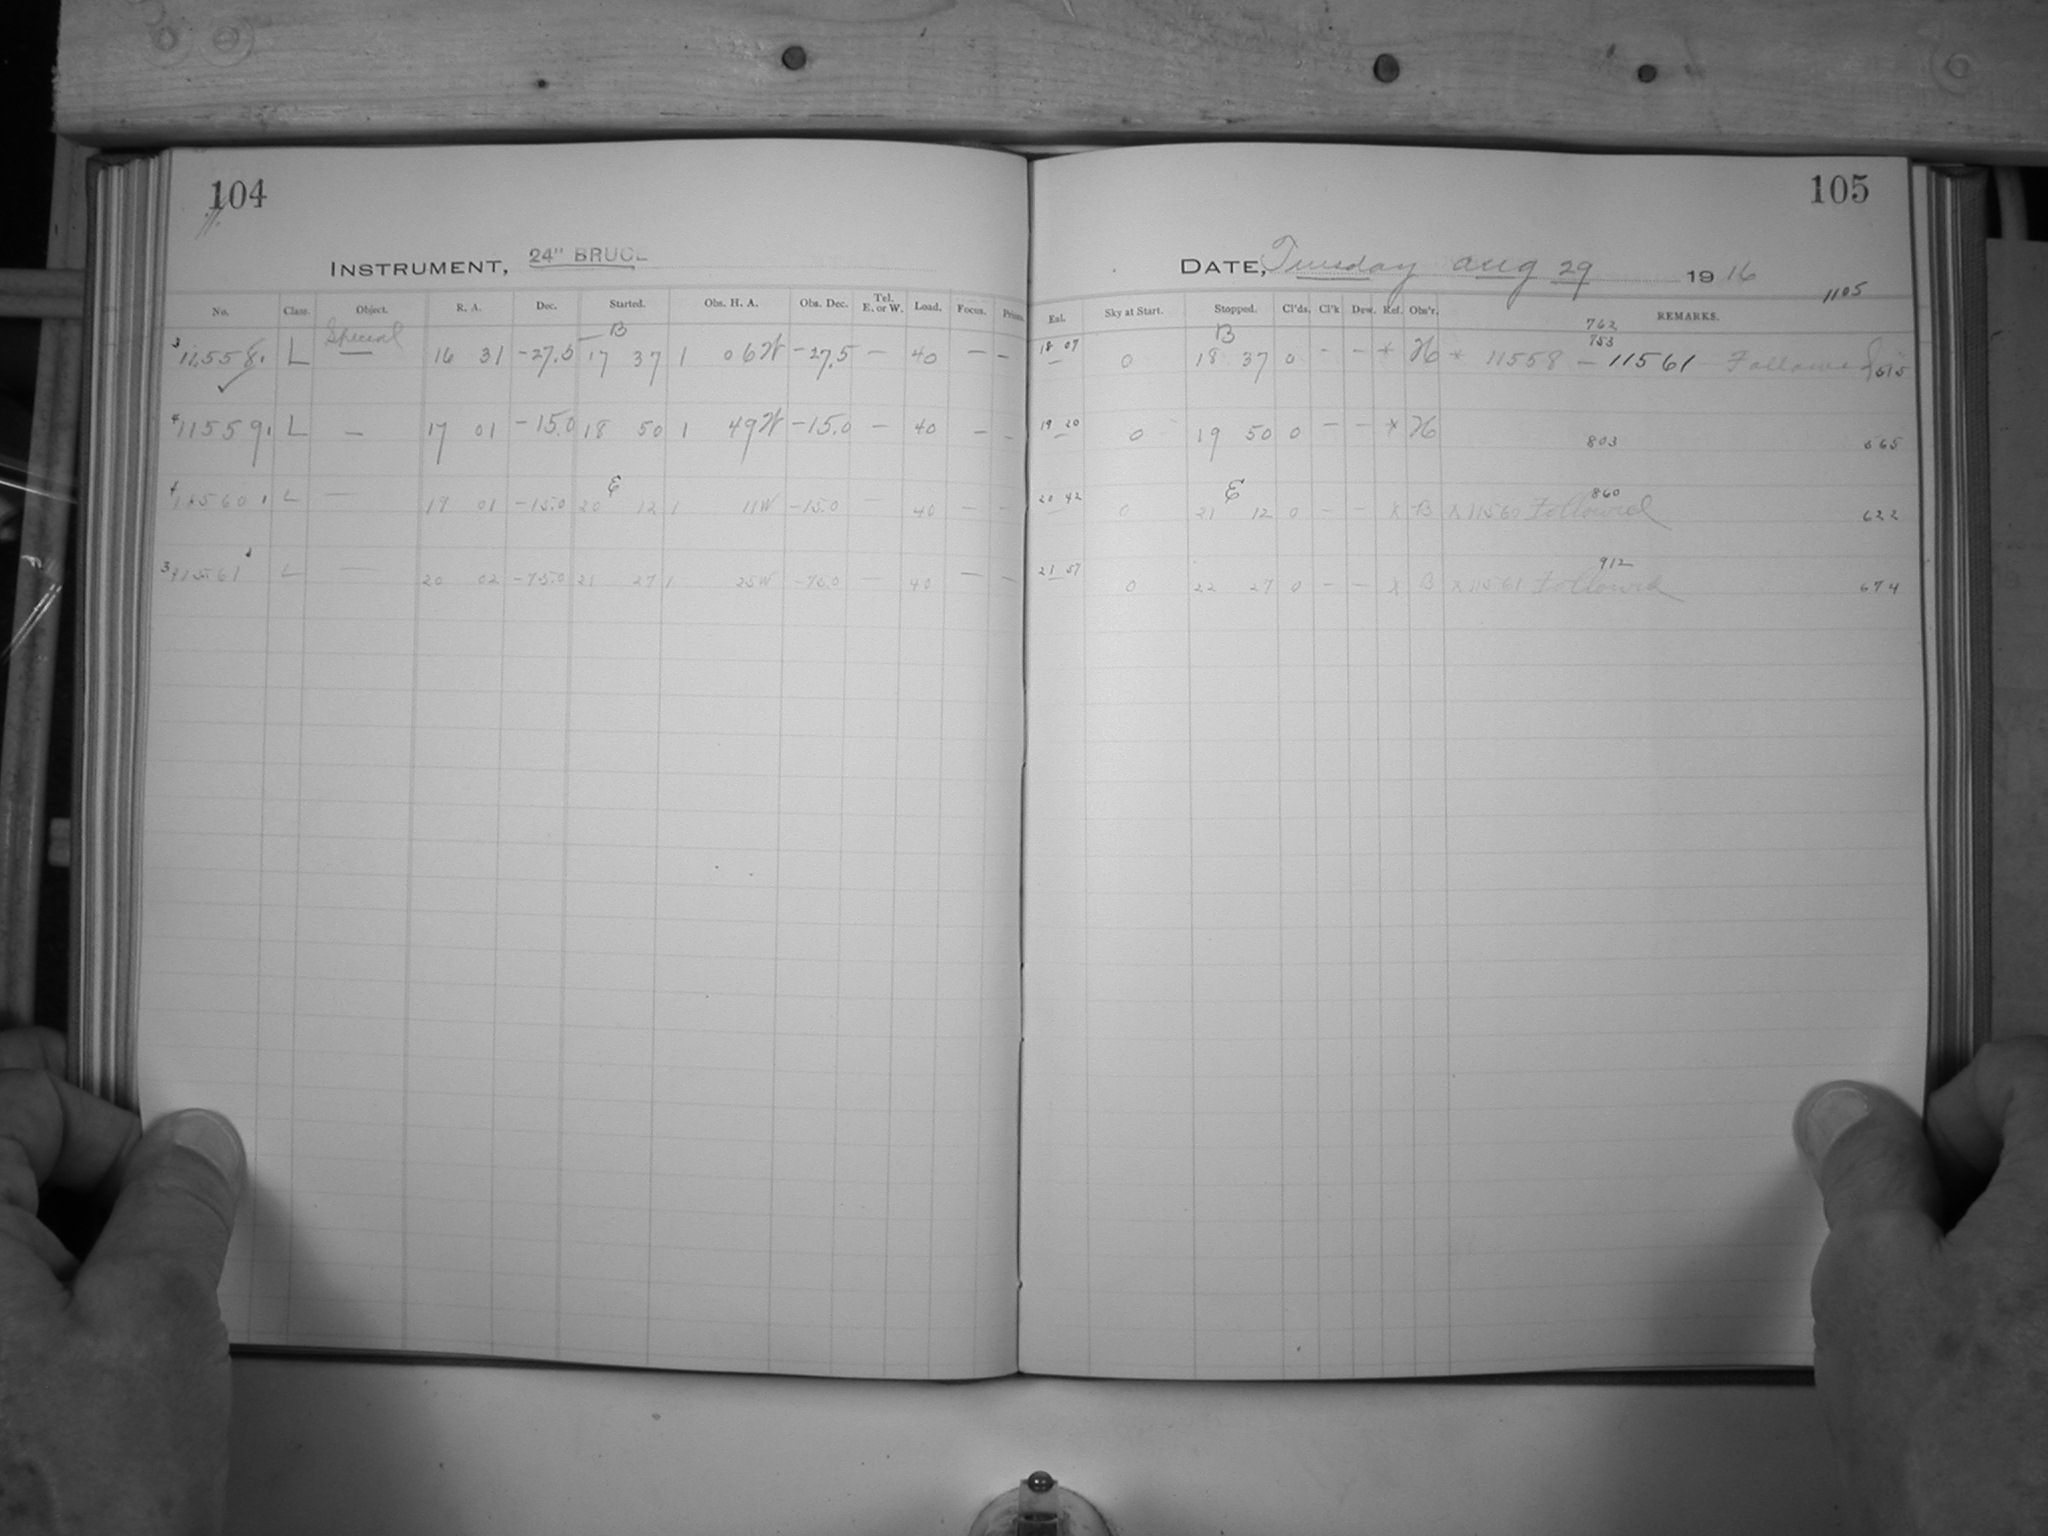 104
INSTRUMENT, 24" BRUCE
No. Class. Object. R. A. Dec. Started. Obs. H. A. Obs. Dec. Tel. E. or W. Load. Focus. Prism.
Special B
3 11558. L 16 31 -27.5 17 37 1 06W -27.5 — 40 — —
4 11559. L — 17 01 -15.0 18 50 1 49W -15.0 — 40 — —
E
4 11560. L — 19 01 -15.0 20 12 1 11W -15.0 — 40 — —
3 11561 L — 20 02 -75.0 21 27 1 25W -75.0 — 40 — —
105
DATE, Tuesday Aug 29 1916
1105
Eal. Sky at Start. Stopped. Cl'ds. Cl'k Dew. Ref. Obs'r. REMARKS.
B 762
753
18 07 0 18 37 0 - - * H * 11558 — 11561 Followed 515
19 20 0 19 50 0 - - * H 803 565
E 860
20 42 0 21 12 0 - - x B x 11560 Followed 622
912
21 57 0 22 27 0 - - x B x 11561 Followed 674